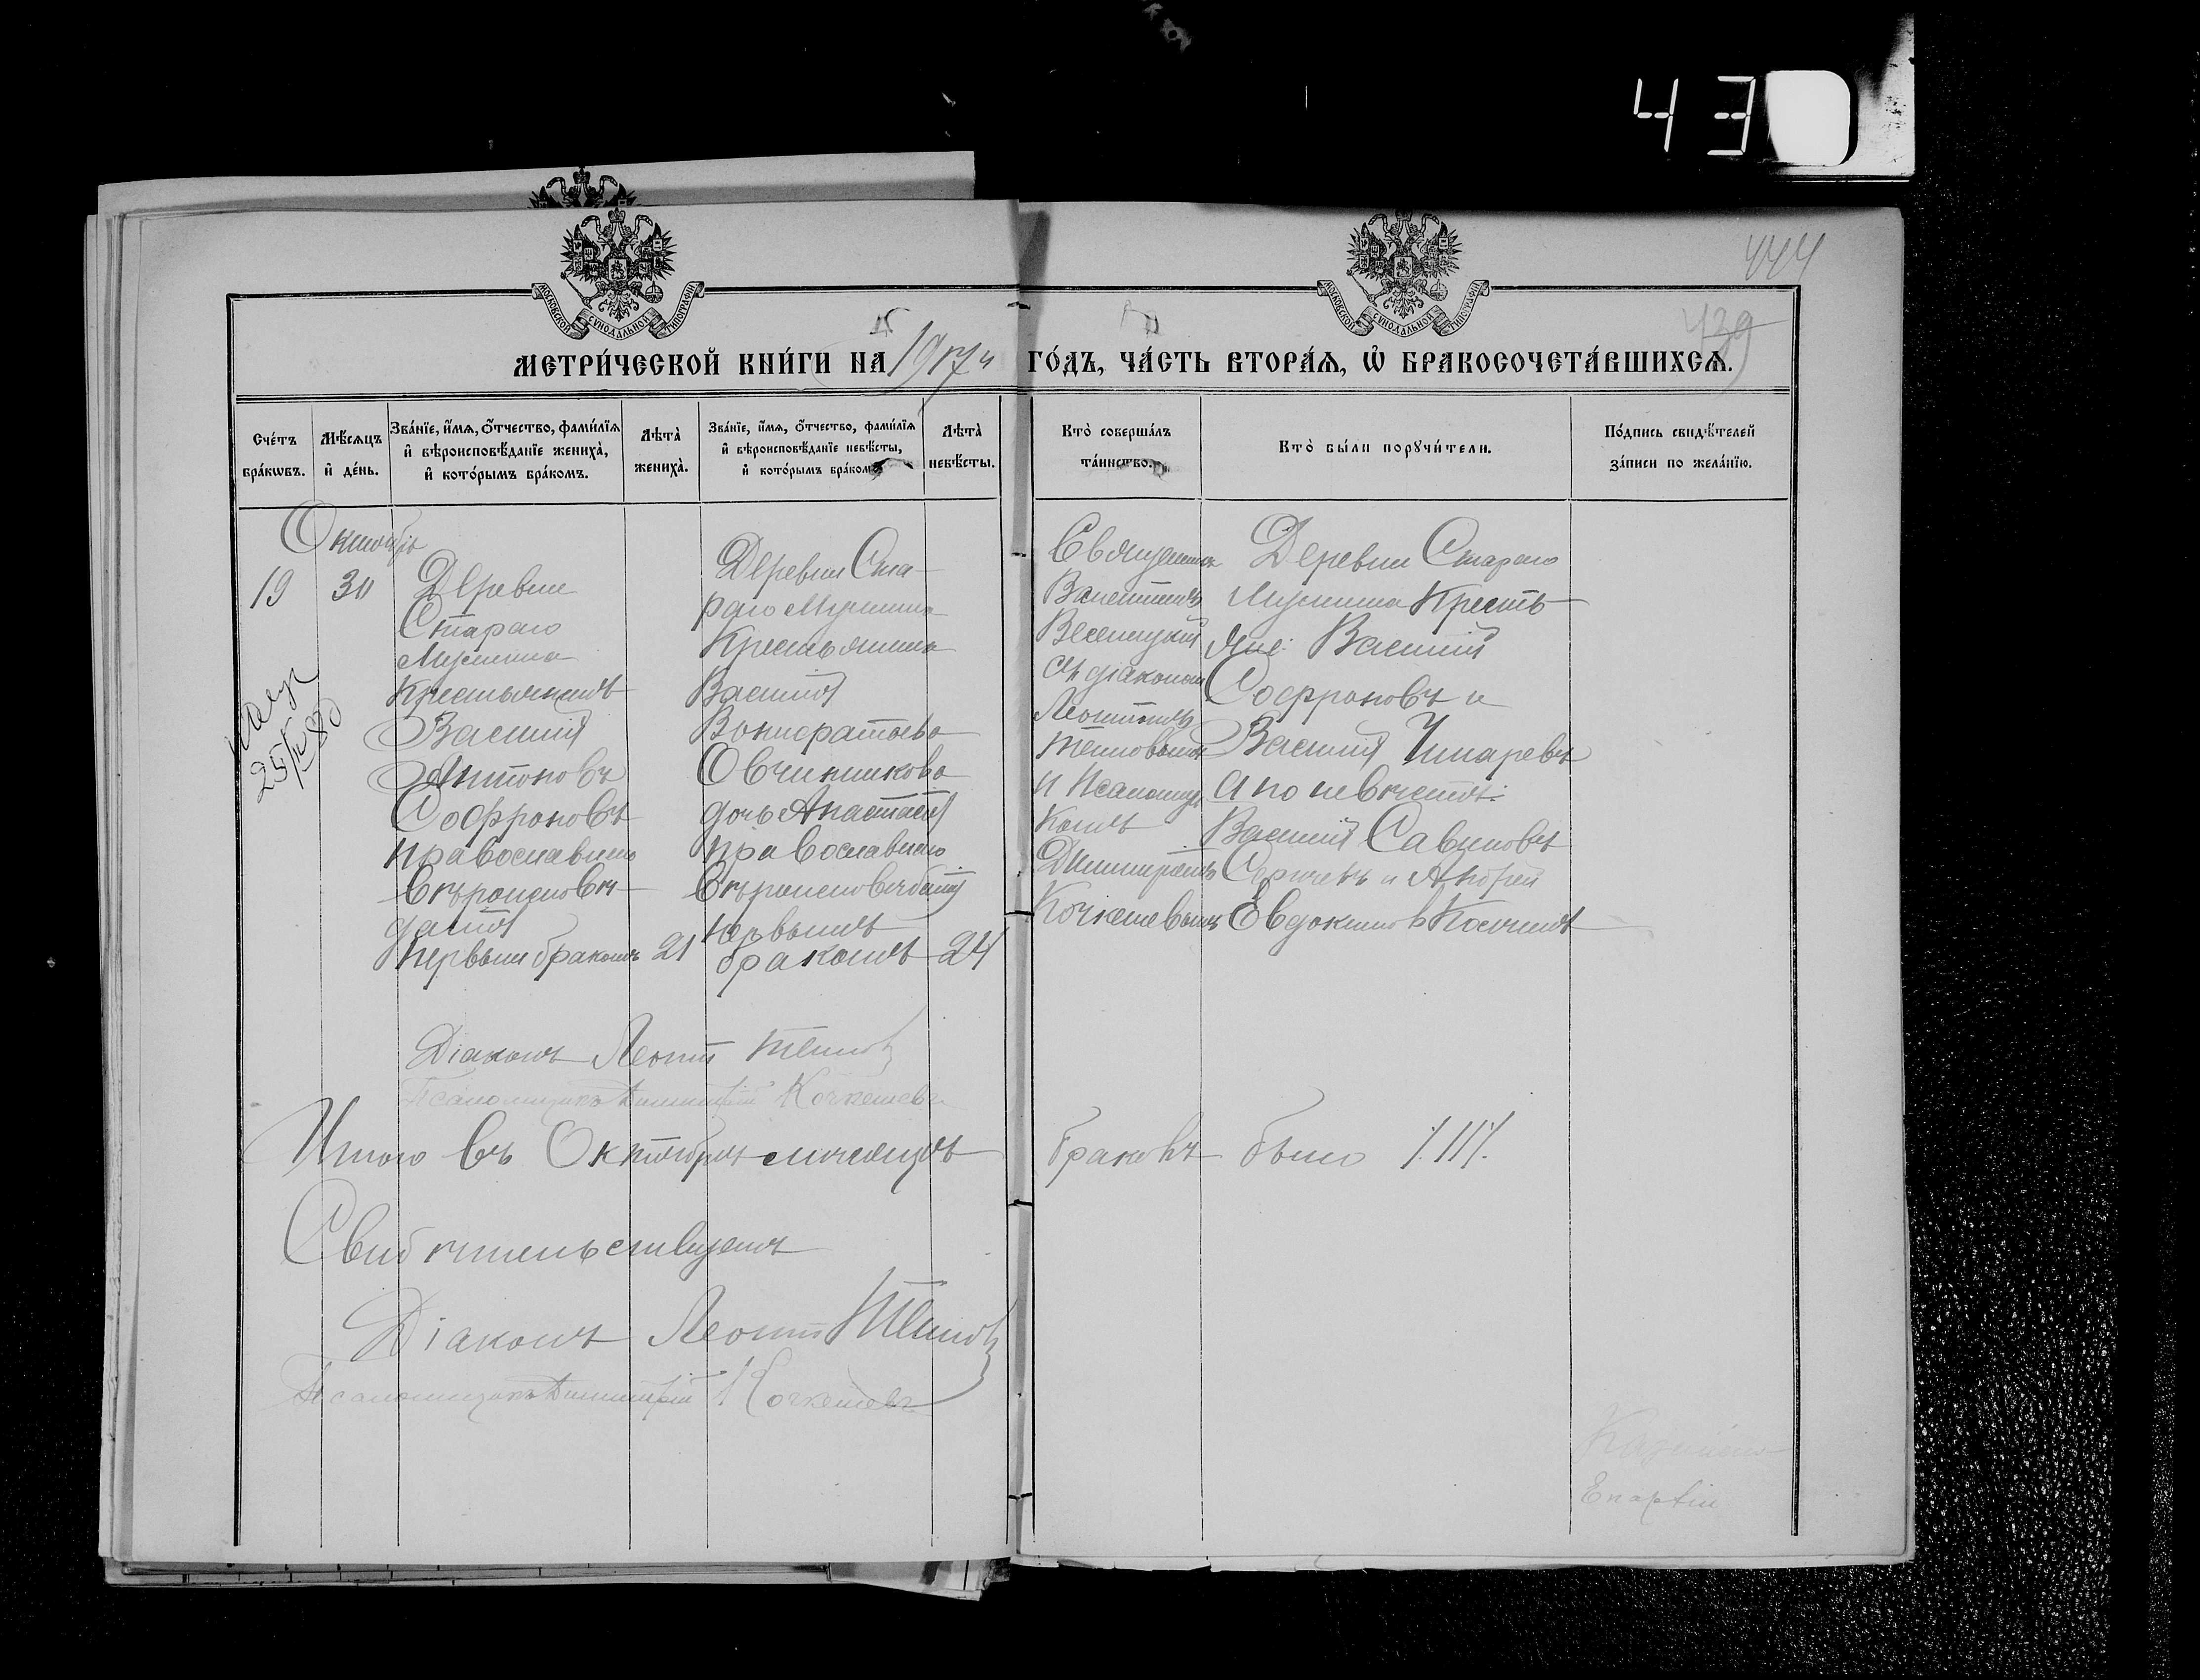 430
444
439
МОСКОВСКОЙ СѴНОДАЛЬНОЙ ТИПОГРАФІИ
МОСКОВСКОЙ СѴНОДАЛЬНОЙ ТИПОГРАФІИ
МЕТРИ́ЧЕСКОЙ КНИ́ГИ НА 1917 й ГО́ДЪ, ЧА́СТЬ ВТОРА́Я, Ѽ БРАКОСОЧЕТА́ВШИХСЯ.
Сче́тъ бра́кѡвъ.
Мѣ́сяцъ и҆ де́нь.
Зва́нїе, и҆́мя, ѻ҆́тчество, фами́лїя и҆ вѣроисповѣ́данїе жениха̀, и҆ кото́рымъ бра́комъ.
Лѣта̀ жениха̀.
Зва́нїе, и҆́мя, ѻ҆́тчество, фами́лїя и҆ вѣроисповѣ́данїе невѣ́сты, и҆ кото́рымъ бра́комъ.
Лѣта̀ невѣ́сты.
Кто̀ соверша́лъ та́инство.
Кто̀ бы́ли порꙋчи́тели.
По́дпись свидѣ́телей за́писи по жела́нїю.
Октябрь
19
30
Деревни
Стараго
Крестьянинъ
Василій
Антоновъ
Софроновъ
православнаго
вѣроисповѣ-
данія
первымъ бракомъ
21
Деревни Ста-
раго
Крестьянина
Василія
Вонифатьева
Овчинникова
дочь Анастасія
православнаго
вѣроисповѣданія
первымъ
бракомъ
24
Священникъ
Валентинъ
Веселицкій
съ діакономъ
Леонтіемъ
и Псаломщи
комъ
Димитріемъ
Кочкешевымъ
Деревни Стараго
Крестья-
не: Василій
Софроновъ и
Василій
а по невѣстѣ:
Василій Савиновъ
и Андрей
Евдокимовъ
25/IV 80
Діаконъ Леонтій
Псаломщикъ Димитрій Кочкешевъ
Итого въ Октябрѣ мѣсяцѣ браковъ было
Свидѣтельствуемъ
Діаконъ Леонтій
Псаломщикъ Димитрій Кочкешевъ
Казанской
Епархіи